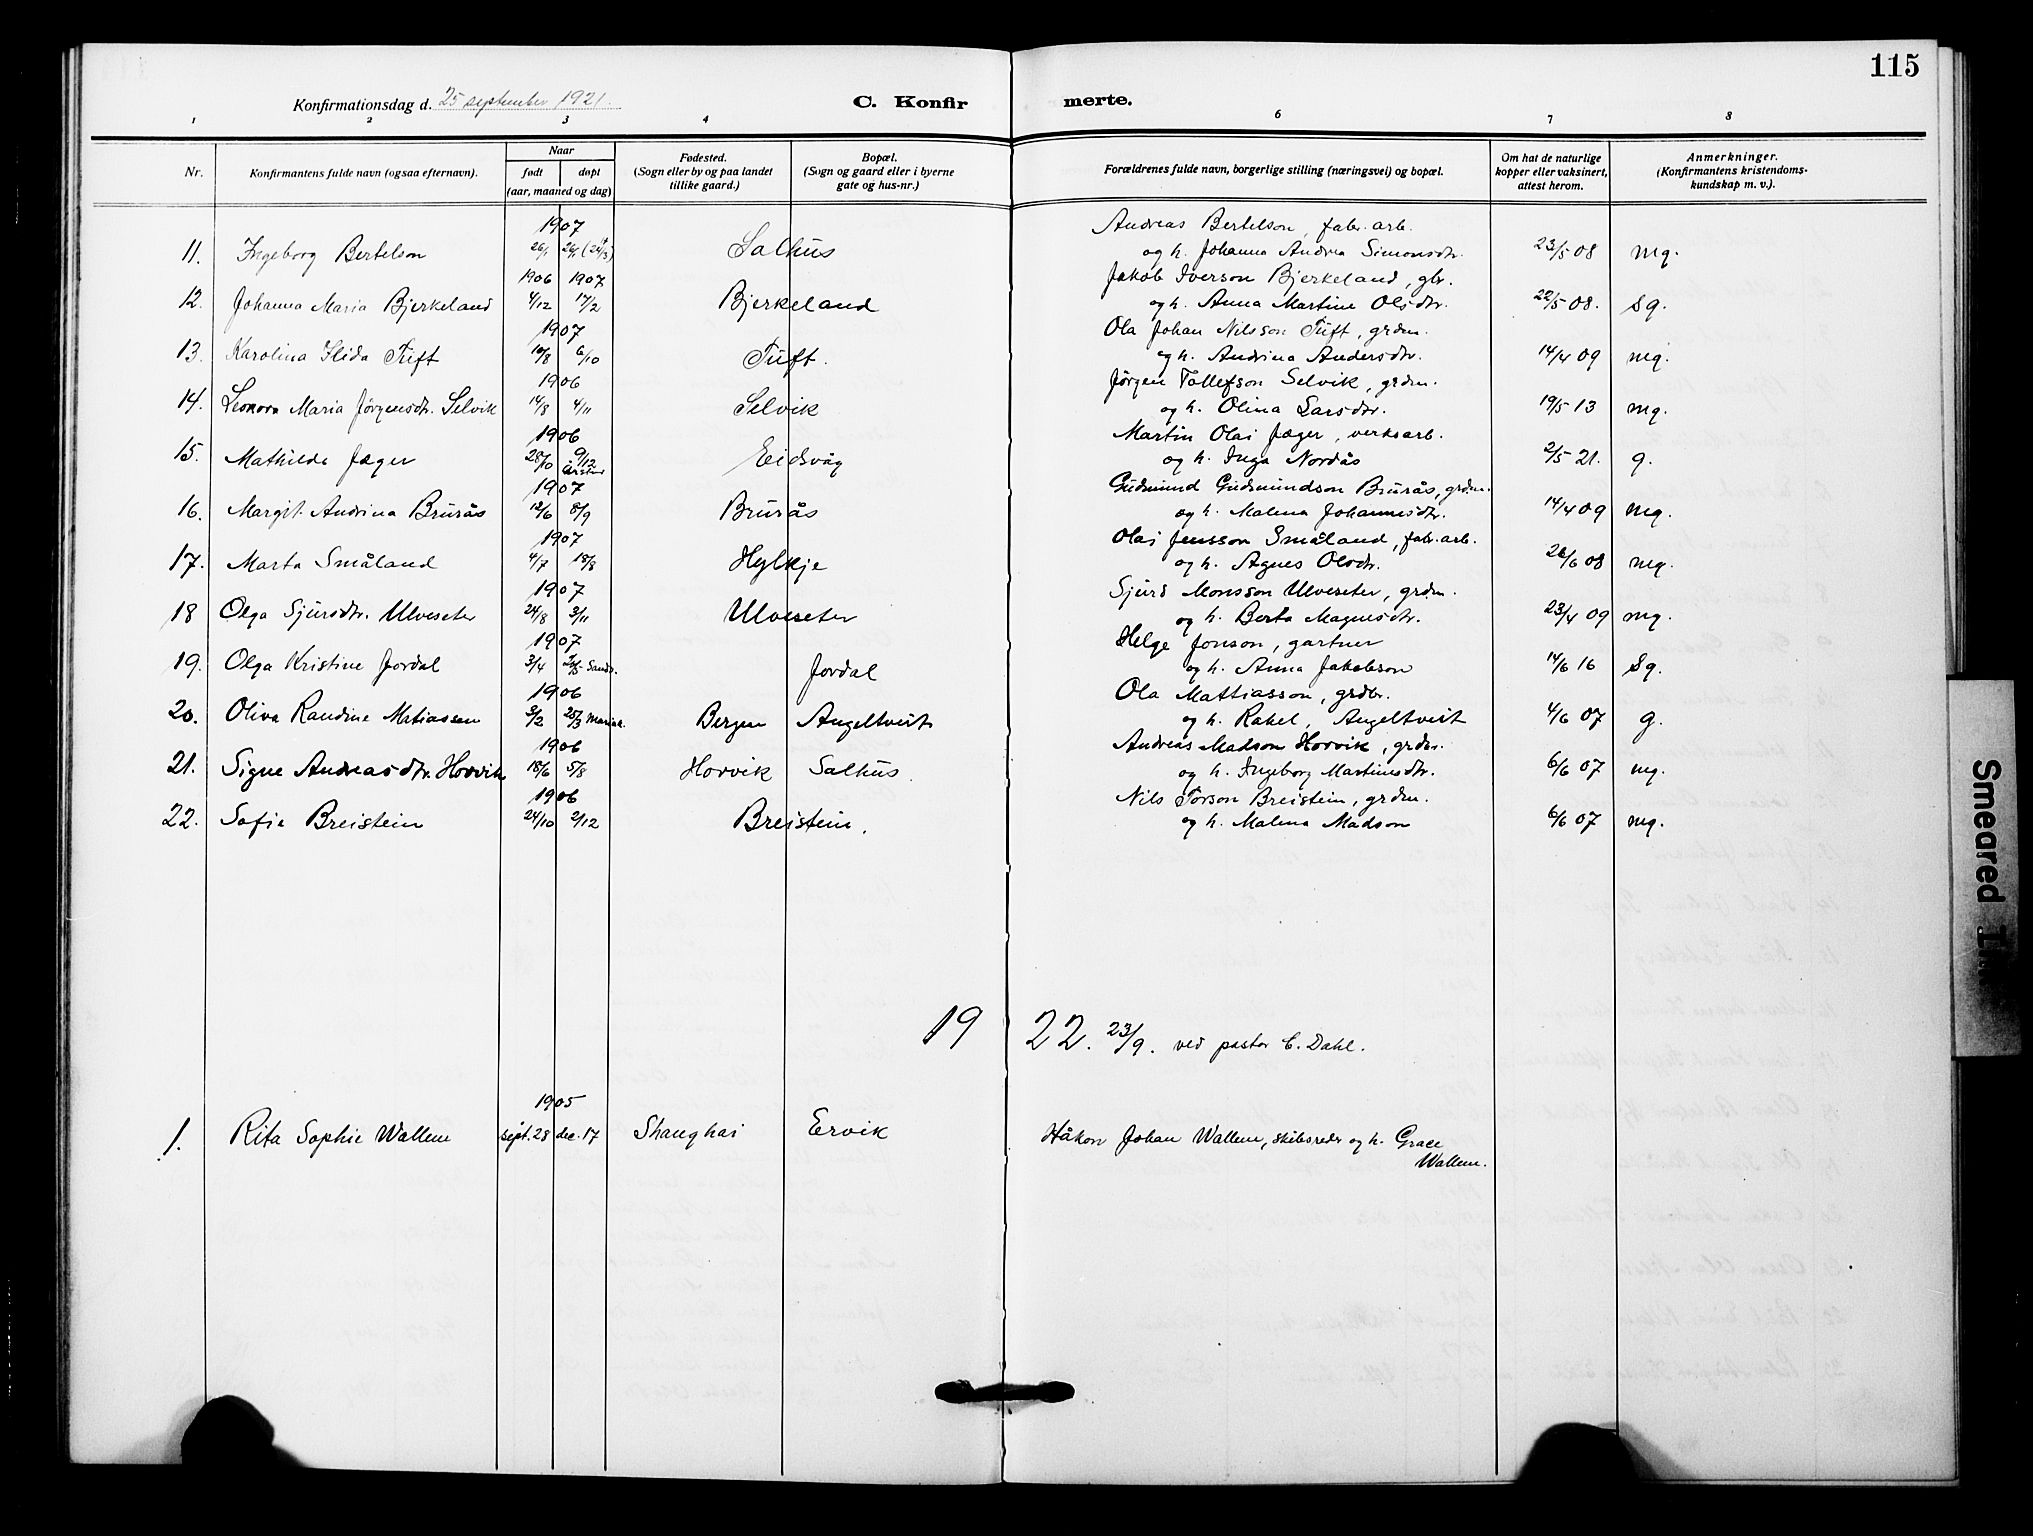 115
Konfirmationsdag d. 25 september 1921.
C. Konfir merte.
1 2 3 4 6 7 8
Nr.
Konfirmantens fulde navn (ogsaa efternavn).
Naar
født døpt
(aar, maaned og dag)
Fødested.
(Sogn eller by og paa landet
tillike gaard.)
Bopæl.
(Sogn og gaard eller i byerne
gate og hus-nr.)
Forældrenes fulde navn, borgerlige stilling (næringsvei) og bopæl.
Om hat de naturlige
kopper eller vaksinert,
attest herom.
Anmerkninger.
(Konfirmantens kristendoms-
kundskap m. v.).
1907 Andreas Bertelson, fabr. arb.
11. Ingeborg Bertelson 26/1 Salhus og h. Johanna Andrea Simonsdtr. 23/5 08 mg.
1906 1907 Jakob Iverson Bjerkeland, gbr.
12. Johanna Maria Bjerkeland 4/12 17/2 Bjerkeland og h. Anna Martine Olsdtr. 22/5 08. Sg.
1907 Ola Johan Nilsson Tuft, grdm.
13. Karolina Ilida Tuft 10/8 6/10 Tuft. og h. Andrina Andersdtr. 14/4 09 mg.
1906 Jørgen Tollefson Selvik, grdm.
14. Leonora Maria Jørgensdtr. Selvik 14/8 4/11 Selvik og h. Olina Larsdtr. 19/5 13 mg.
1906 Martin Olai Jæger, verksarb.
15. Mathilde Jæger 28/10 9/12 Årstad Eidsvåg og h. Inga Nordås 2/5 21. g.
1907 Gudmund Gudmundson Brurås, grdm.
16. Margit Andrina Brurås 12/6 8/9 Brurås og h. Malena Johannesdtr. 14/4 09 mg.
1907 Olai Jensson Småland, fabr. arb.
17. Marta Småland 4/7 18/8 Hylkje og h. Agnes Olsdtr. 26/6 08 mg.
1907 Sjurd Monsson Ulveseter, grdm.
18 Olga Sjursdtr. Ulveseter 24/8 3/11 Ulveseter og h. Berta Magnesdtr. 23/4 09 mg.
1907 Helge Jonson, gartner
19. Olga Kristine Jordal 3/4 Sandv. Jordal og h. Anna Jakobson 14/6 16 Sg.
1906 Ola Mattiasson, grdbr.
20. Oliva Randine Matiassen 3/2 25/3 Mariak. Bergen Angeltveit og h. Rakel, Angeltveit 4/6 07 g.
1906 Andreas Madson Horvik, grdm.
21. Signe Andreasdtr. Horvik 18/6 5/8 Horvik Salhus. og h. Ingeborg Martinusdtr. 6/6 07 mg.
1906 Nils Torson Breistein, grdm.
22. Sofie Breistein 24/10 2/12 Breistein. og h. Malena Madson 6/6 07 mg.
19 22. 23/9. ved pastor C. Dahl.
1905
1. Rita Sophie Wallem sept. 28 dec. 17 Shanghai Ervik Håkon Johan Wallem, skibsreder og h. Grace
Wallem.
Smeared